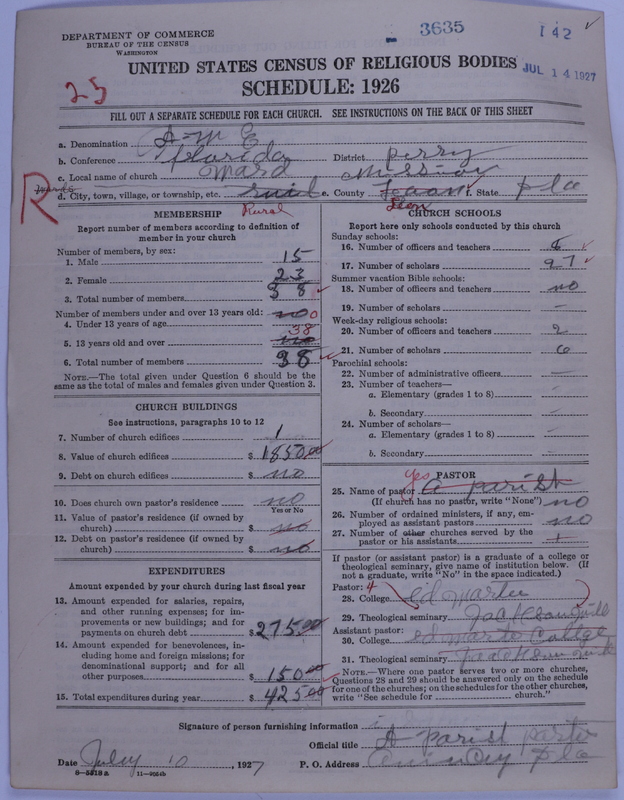 DEPARTMENT OF COMMERCE
BUREAU OF THE CENSUS
WASHINGTON
3635
142
UNITED STATES CENSUS OF RELIGIOUS BODIES
JUL 14 1927
SCHEDULE: 1926
25
FILL OUT A SEPARATE SCHEDULE FOR EACH CHURCH. SEE INSTRUCTIONS ON THE BACK OF THIS SHEET
a. Denomination A-M E
b. Conference Florida District Perry
c. Local name of church Ward Missuoy
R
d. City, town, village, or township, etc. e. County f. State Fla
Rural
Leon
MEMBERSHIP
Report number of members according to definition of
member in your church
Number of members, by sex:
1. Male 15
2. Female 23
3. Total number of members 38
Number of members under and over 13 years old:
4. Under 13 years of age no 0
5. 13 years old and over no 38
6. Total number of members 38
NOTE.—The total given under Question 6 should be the
same as the total of males and females given under Question 3.
CHURCH BUILDINGS
See instructions, paragraphs 10 to 12
7. Number of church edifices 1
8. Value of church edifices $ 1850.00
9. Debt on church edifices $ no
10. Does church own pastor's residence no
Yes or No
11. Value of pastor's residence (if owned by
church) $ no
12. Debt on pastor's residence (if owned by
church) $ no
EXPENDITURES
Amount expended by your church during last fiscal year
13. Amount expended for salaries, repairs,
and other running expenses; for im-
provements or new buildings; and for
payments on church debt $ 275.00
14. Amount expended for benevolences, in-
cluding home and foreign missions; for
denominational support; and for all
other purposes $ 150.00
15. Total expenditures during year $ 425.00
CHURCH SCHOOLS
Report here only schools conducted by this church
Sunday schools:
16. Number of officers and teachers 6
17. Number of scholars 27
Summer vacation Bible schools:
18. Number of officers and teachers no
19. Number of scholars —
Week-day religious schools:
20. Number of officers and teachers 2
21. Number of scholars 6
Parochial schools:
22. Number of administrative officers —
23. Number of teachers—
a. Elementary (grades 1 to 8) —
b. Secondary —
24. Number of scholars—
a. Elementary (grades 1 to 8) —
b. Secondary —
yes PASTOR
25. Name of pastor A parist
(If church has no pastor, write "None") no
26. Number of ordained ministers, if any, em-
ployed as assistant pastors no
27. Number of other churches served by the
pastor or his assistants
If pastor (or assistant pastor) is a graduate of a college or
theological seminary, give name of institution below. (If
not a graduate, write "No" in the space indicated.)
Pastor:
28. College ed Marter
29. Theological seminary
Assistant pastor:
30. College ed Marter College
31. Theological seminary
NOTE.—Where one pastor serves two or more churches,
Questions 28 and 29 should be answered only on the schedule
for one of the churches; on the schedules for the other churches,
write "See schedule for church."
Signature of person furnishing information
Official title A parist
Date July 10, 1927 P. O. Address Quincy Fla
8—5318a 11—9554b